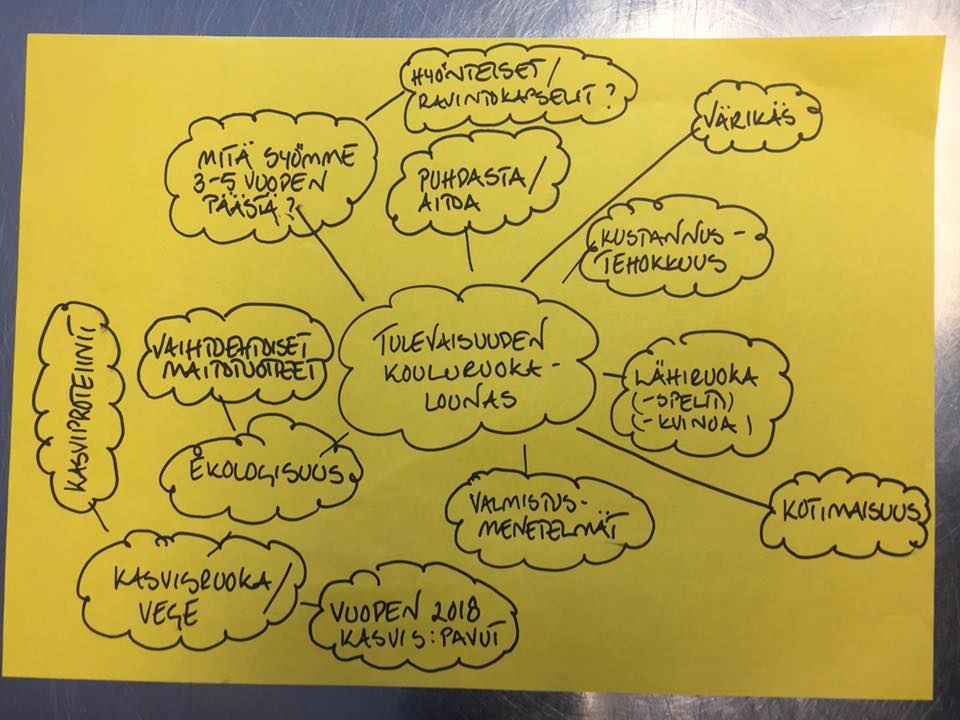 HYÖNTEISET/
RAVINTOKAPSELIT?
VÄRIKÄS
MITÄ SYÖMME
3-5 VUODEN
PÄÄSTÄ?
PUHDASTA/
AITOA
KUSTANNUS-
TEHOKKUUS
KASVIPROTEIINIT
VAIHTOEHTOISET
MAITOTUOTTEET
TULEVAISUUDEN
KOULURUOKA-
LOUNAS
LÄHIRUOKA
(-SPELTTI)
(-KVINOA)
EKOLOGISUUS
VALMISTUS-
MENETELMÄT
KOTIMAISUUS
KASVISRUOKA/
VEGE
VUODEN 2018
KASVIS: PAVUT